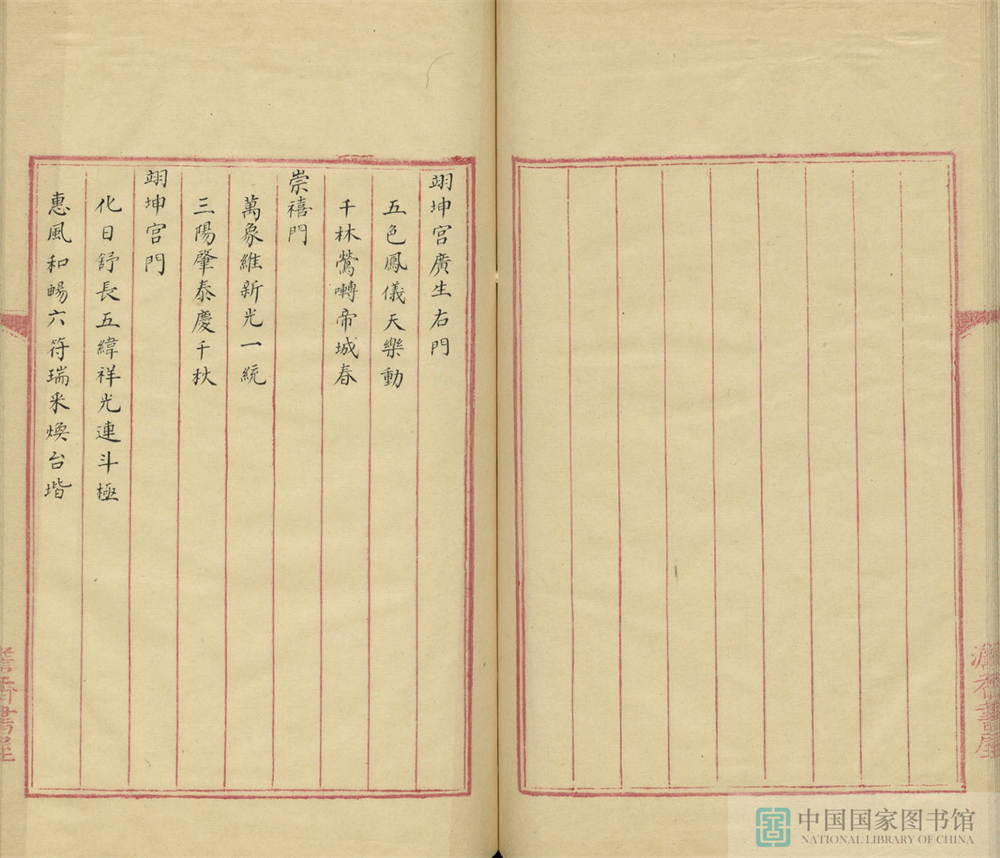 翊坤宮廣生右門
五色鳳儀天樂動
千林鶯囀帝城春
崇禧門
萬象維新光一統
三陽肇泰慶千秋
翊坤宮門
化日舒長五緯祥光連斗極
惠風和暢六符瑞采煥台堦
齋書屋
中国国家图书馆
NATIONAL LIBRARY OF CHINA